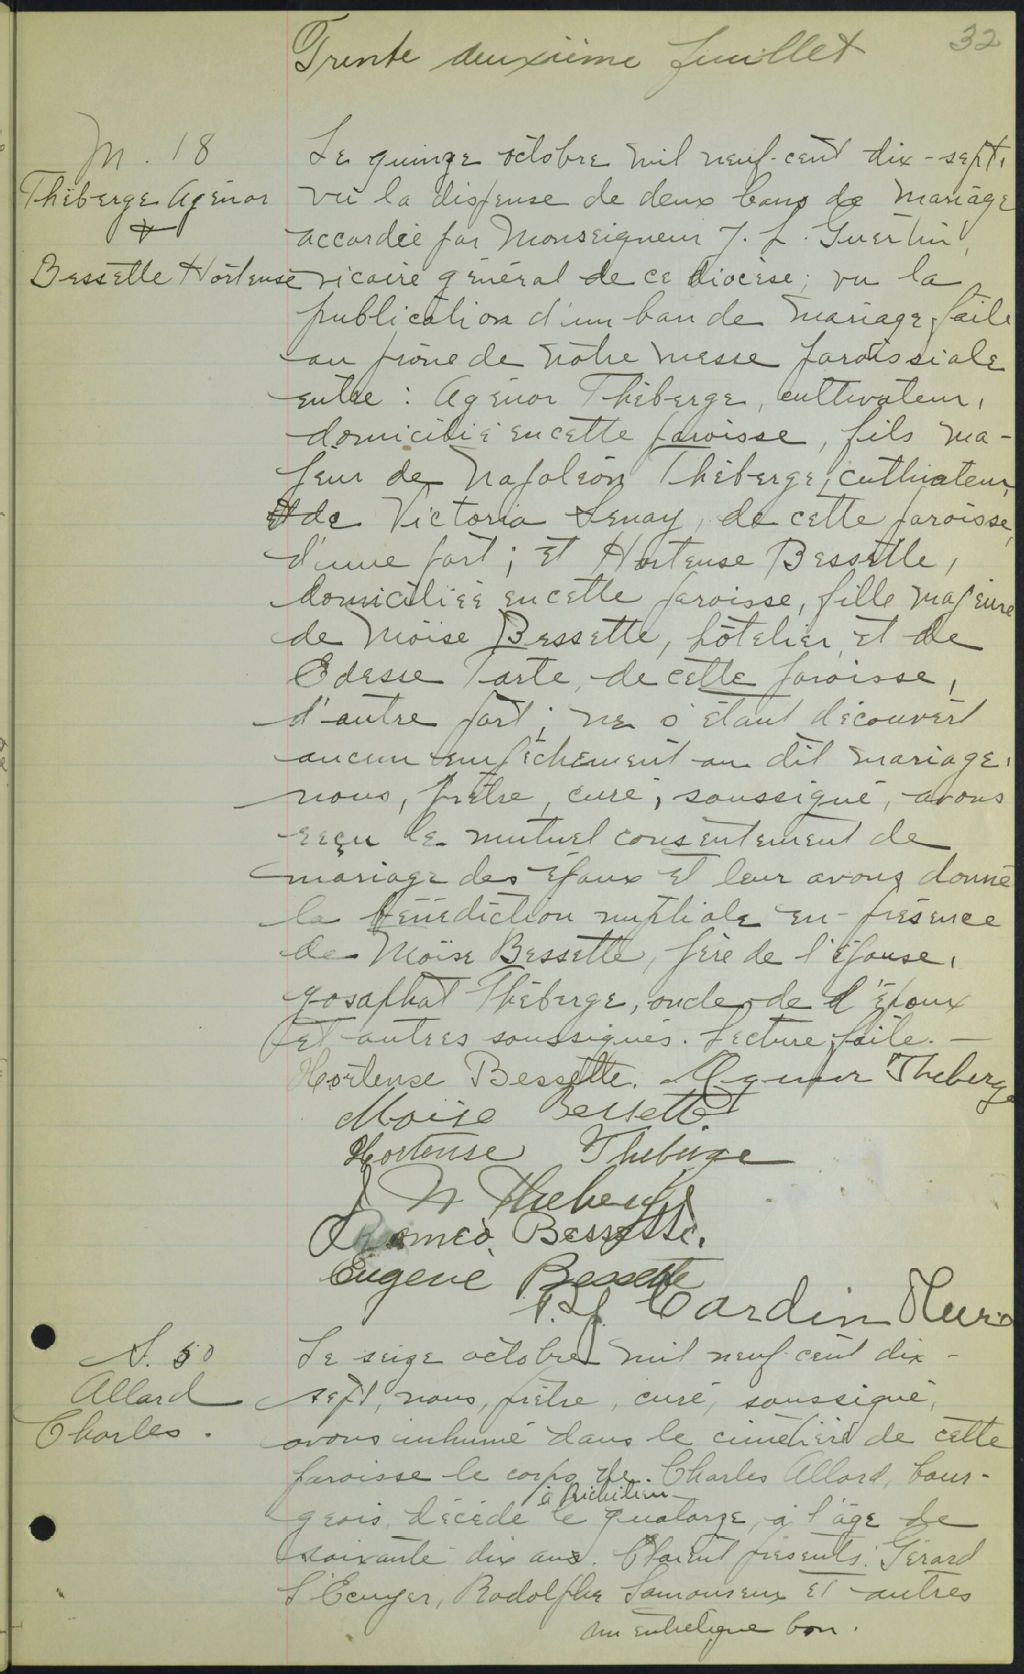 32
Trente deuxième feuillet
M. 18
Théberge Agénor
&
Bessette Hortense
Le quinze octobre mil neuf-cent dix-sept,
vu la dispense de deux bans de mariage
accordée par Monseigneur J. L. Guertin,
vicaire général de ce diocèse; vu la
publication d'un ban de mariage faite
au prône de nôtre messe paroissiale
entre : Agénor Théberge, cultivateur,
domicilié en cette paroisse, fils ma-
jeur de Napoléon Théberge, cultivateur,
et de Victoria Senay, de cette paroisse,
d'une part; et Hortense Bessette,
domiciliée en cette paroisse, fille majeure
de Moïse Bessette, hôtelier, et de
Edesse Tarte, de cette paroisse,
d'autre part; ne s'étant découvert
aucun empêchement au dit mariage,
nous, prêtre, curé, soussigné, avons
reçu le mutuel consentement de
mariage des époux et leur avons donné
la bénédiction nuptiale en présence
de Moïse Bessette, père de l'épouse,
Josaphat Théberge, oncle de l'époux
et autres soussignés. Lecture faite. —
Hortense Bessette. Agenor Theberge
Moïse Bessette
Hortense Theberge
J N Theberge
Romeo Bessette.
Eugène Bessette
Cardin Curé
S. 50
Allard
Charles.
Le seize octobre mil neuf-cent dix-
sept, nous, prêtre, curé, soussigné,
avons inhumé dans le cimetière de cette
paroisse le corps de Charles Allard, bour-
à Richelieu
geois, décédé le quatorze, à l'âge de
soixante-dix ans. Etaient présents: Gérard
L'Ecuyer, Rodolphe Lamoureux et autres
un entreligne bon.